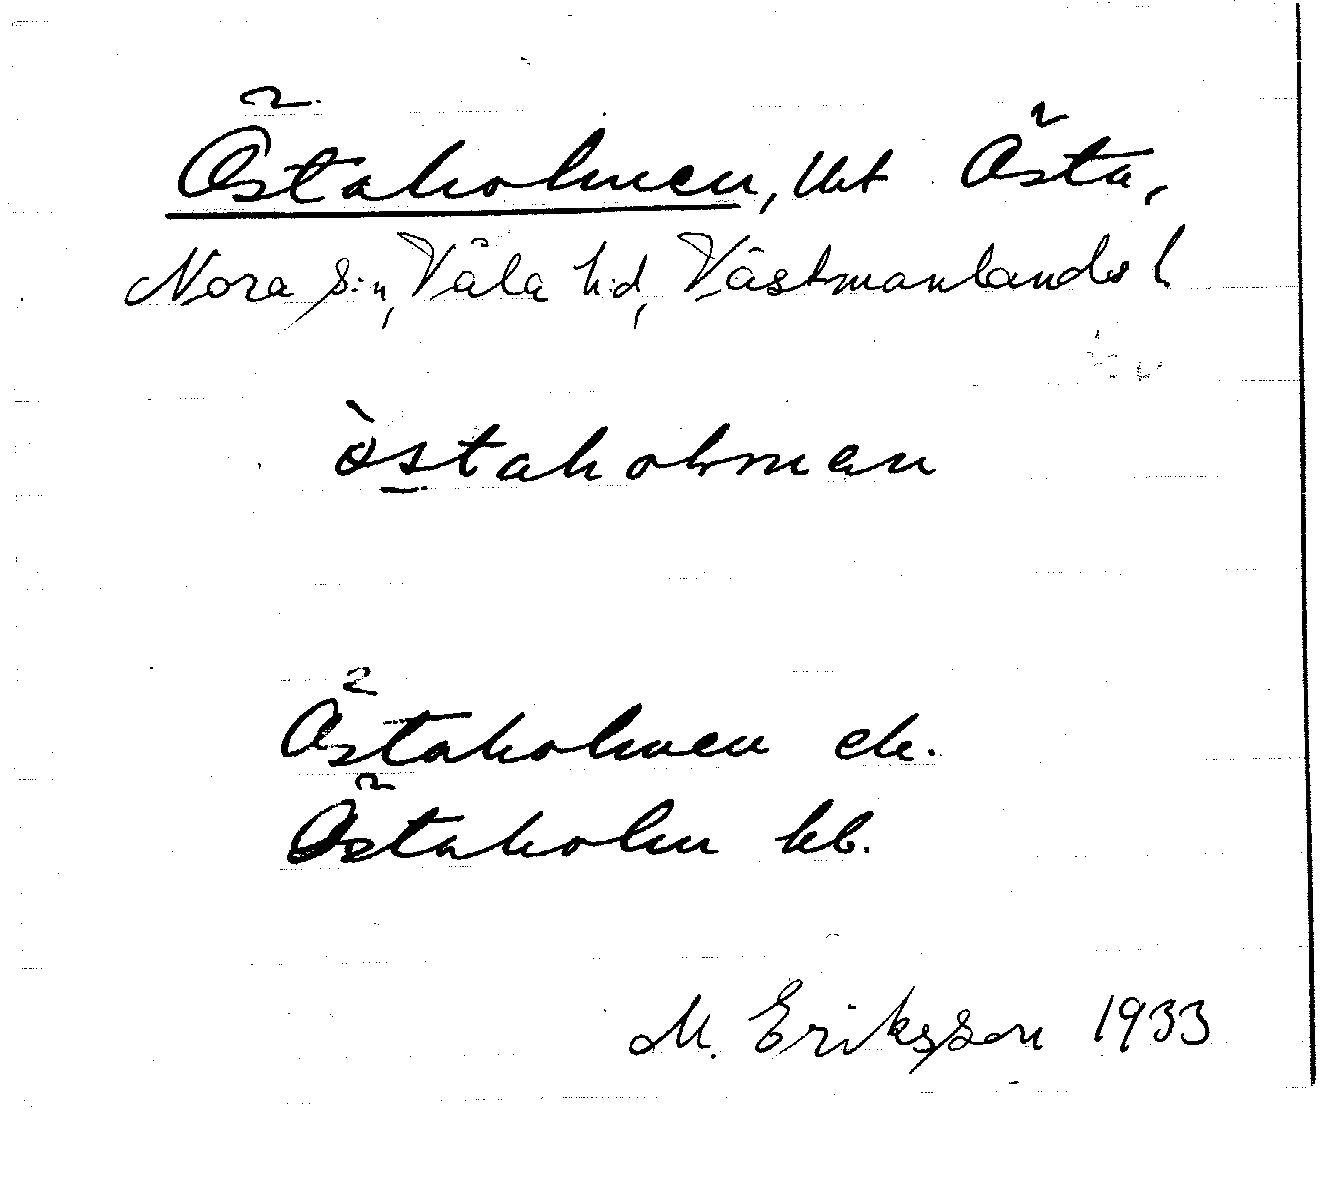 Östaholmen, lht Östa,
Nora s:n, Våla hd, Västmanlands l
òstaholmen
Östaholmen ek.
Östaholm kb.
M. Eriksson 1933